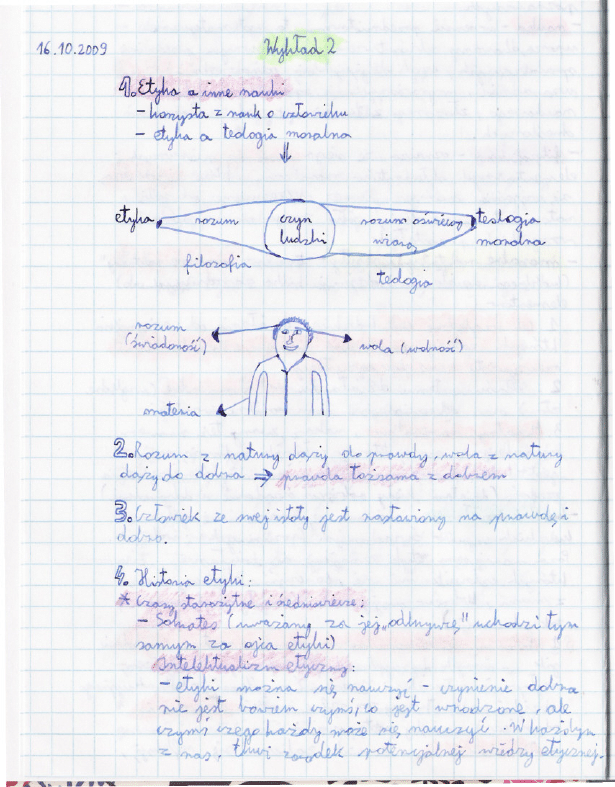 16.10.2009
Wykład 2
1. Etyka a inne nauki
- korzysta z nauk o człowieku
- etyka a teologia moralna
⇓
etyka
rozum
czyn
ludzki
rozum oświecony
wiarą
teologia
moralna
filozofia
teologia
rozum
(świadomość)
wola (wolność)
materia
2. Rozum z natury dąży do prawdy, wola z natury
dąży do dobra ⇒ prawda tożsama z dobrem
3. Człowiek ze swej istoty jest nastawiony na prawdę i
dobro.
4. Historia etyki:
* Czasy starożytne i średniowieczne:
- Sokrates (uważany za jej „odkrywcę" uchodzi tym
samym za ojca etyki)
Intelektualizm etyczny:
- etyki można się nauczyć - czynienie dobra
nie jest bowiem czymś, co jest wrodzone, ale
czymś czego każdy może się nauczyć. W każdym
z nas, tkwi zarodek potencjalnej wiedzy etycznej.